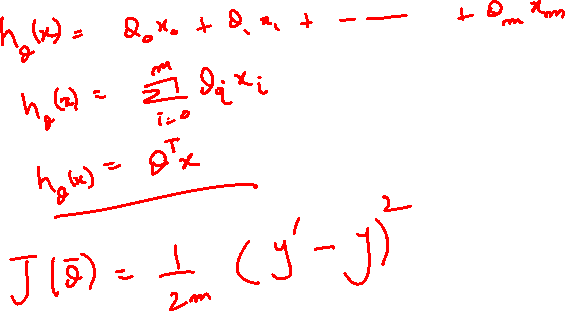 h_θ(x) = θ₀x₀ + θ₁x₁ + ---- + θₘxₘ
h_θ(x) = Σ_{i=0}^{m} θᵢxᵢ
h_θ(x) = θᵀx
J(θ̄) = 1/2m (y' - y)²